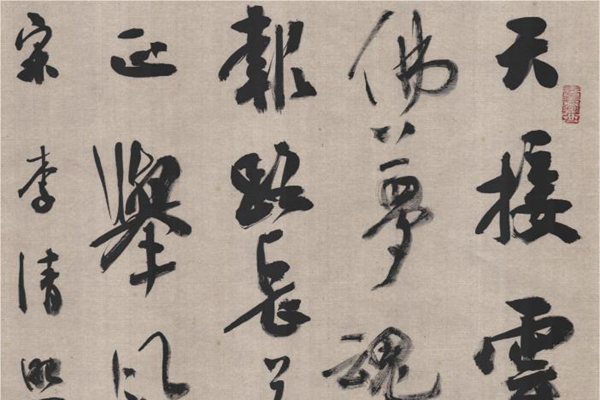 天接雲
佛夢魂
報路長
正舉風
宋李清照